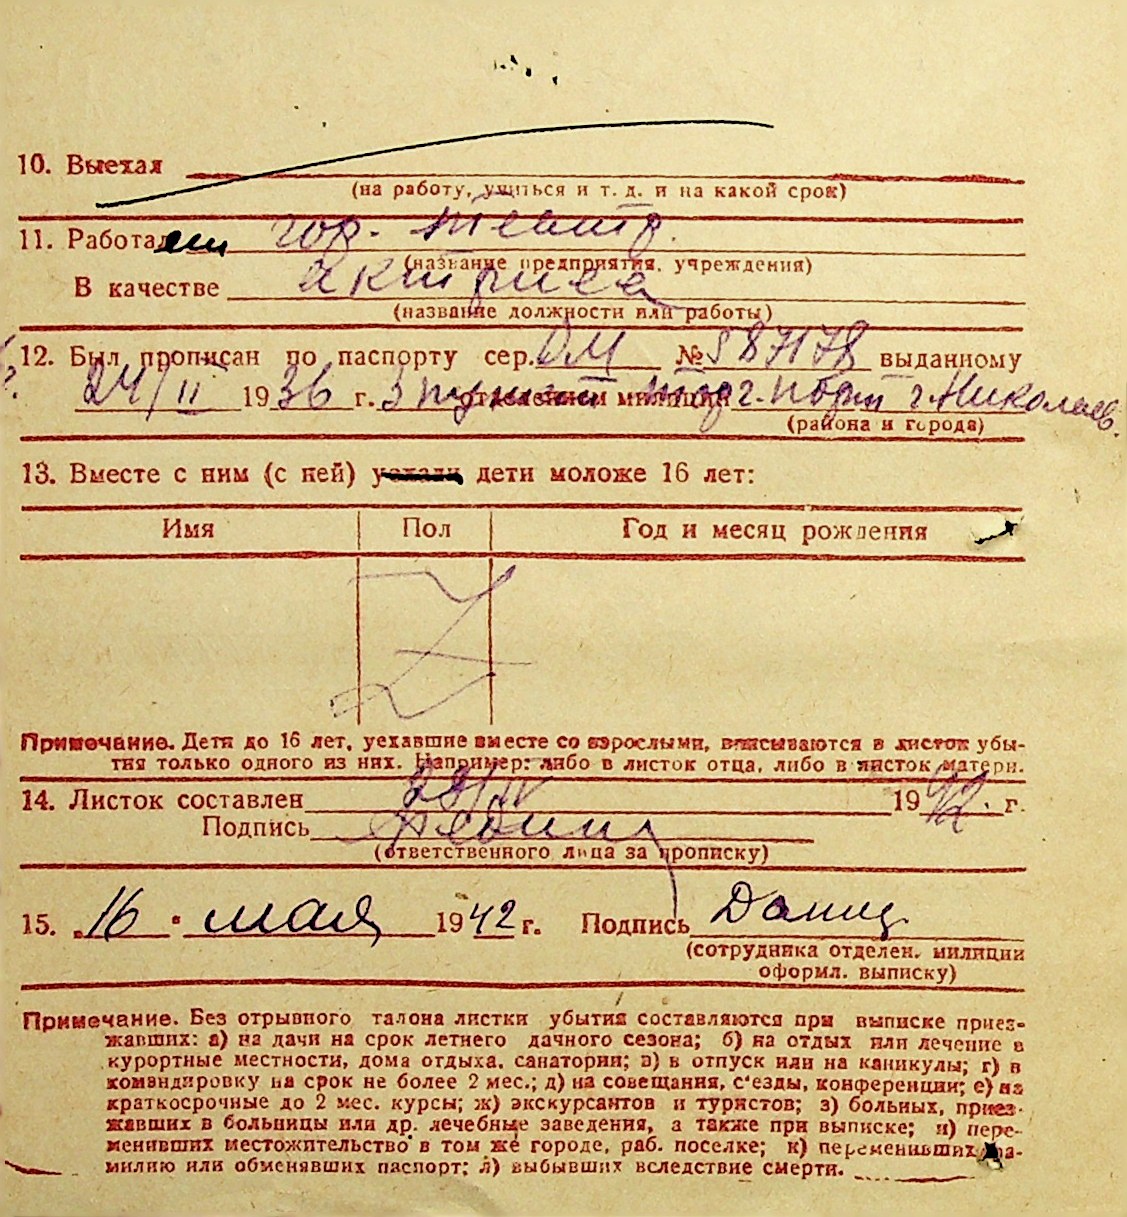 10. Выехал
(на работу, учиться и т. д. и на какой срок)
11. Работает гор. театр.
(название предприятия, учреждения)
В качестве актриса
(название должности или работы)
12. Был прописан по паспорту сер. ОМ № 587178 выданному
24/II 1936 г. 3 отделением милиции г. Николаев.
(района и города)
13. Вместе с ним (с ней) уехали дети моложе 16 лет:
Имя Пол Год и месяц рождения
Z
Примечание. Дети до 16 лет, уехавшие вместе со взрослыми, вписываются в листок убы-
тия только одного из них. Например: либо в листок отца, либо в листок матери.
14. Листок составлен 29/IV 1942. г.
Подпись
(ответственного лица за прописку)
15. „16" мая 1942 г. Подпись
(сотрудника отделен. милиции
оформл. выписку)
Примечание. Без отрывного талона листки убытия составляются при выписке приез-
жавших: а) на дачи на срок летнего дачного сезона; б) на отдых или лечение в
курортные местности, дома отдыха, санатории; в) в отпуск или на каникулы; г) в
командировку на срок не более 2 мес.; д) на совещания, с'езды, конференции; е) на
краткосрочные до 2 мес. курсы; ж) экскурсантов и туристов; з) больных, приез-
жавших в больницы или др. лечебные заведения, а также при выписке; и) пере-
менивших местожительство в том же городе, раб. поселке; к) переменивших фа-
милию или обменявших паспорт; л) выбывших вследствие смерти.